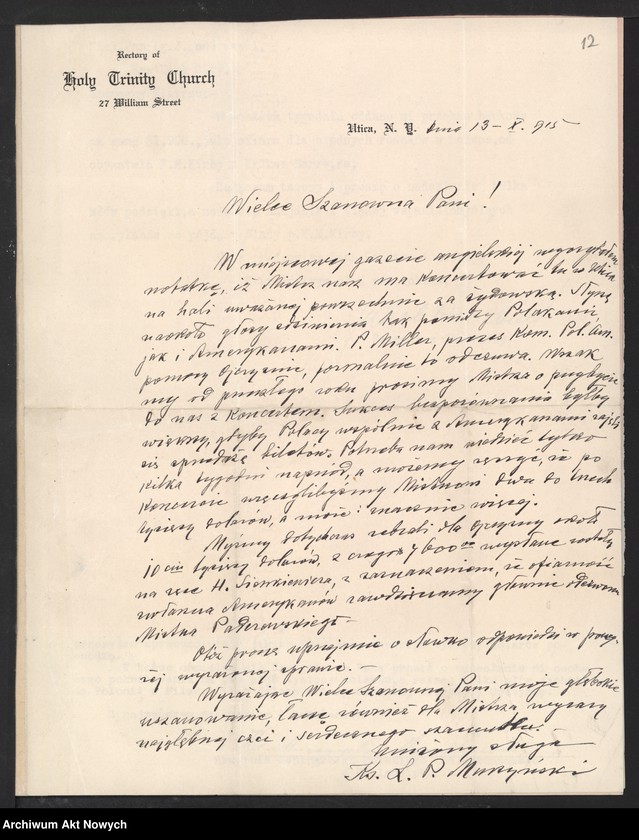 12
Rectory of
Holy Trinity Church
27 William Street
Utica, N. Y. dnia 13 – X. 915
Wielce Szanowna Pani!
W miejscowej gazecie angielskiej wyczytałem
notatkę, iż Mistrz nasz ma koncertować tu w
na hali uważanej powszechnie za żydowską. Słyszę
naokoło głosy zdziwienia tak pomiędzy Polakami,
jak i Amerykanami. P. Miller, prezes Kom. Pol. Am.
pomocy Ojczyźnie, formalnie to odczuwa. Wszak
my od puszłego roku prosimy Mistrza o przybycie
do nas z koncertem. Sukces bezporównania byłby
większy, gdyby Polacy wspólnie z Amerykanami zajęli
się sprzedażą biletów. Potrzeba nam wiedzieć tylko
kilka tygodni naprzód, a możemy ręczyć, że po
koncercie wręczylibyśmy Mistrzowi dwa do trzech
tysięcy dolarów, a może i znacznie więcej.
Myśmy dotychczas zebrali dla Ojczyzny około
10 ciu tysięcy dolarów, z czego 7600 00 wysłane zostały
na ręce H. Sienkiewicza, z zaznaczeniem, że ofiarność
zwłaszcza Amerykanów zawdzięczamy głównie odezwom
Mistrza Paderewskiego –
Otóż proszę uprzejmie o słówko odpowiedzi w powy-
żej wyrażonej sprawie. –
Wyrażając Wielce Szanownej Pani moje głębokie
uszanowanie, łączę również dla Mistrza wyrazy
najgłębszej czci i serdecznego szacunku.
Uniżony sługa
Ks. L. P. Muszyński
Archiwum Akt Nowych